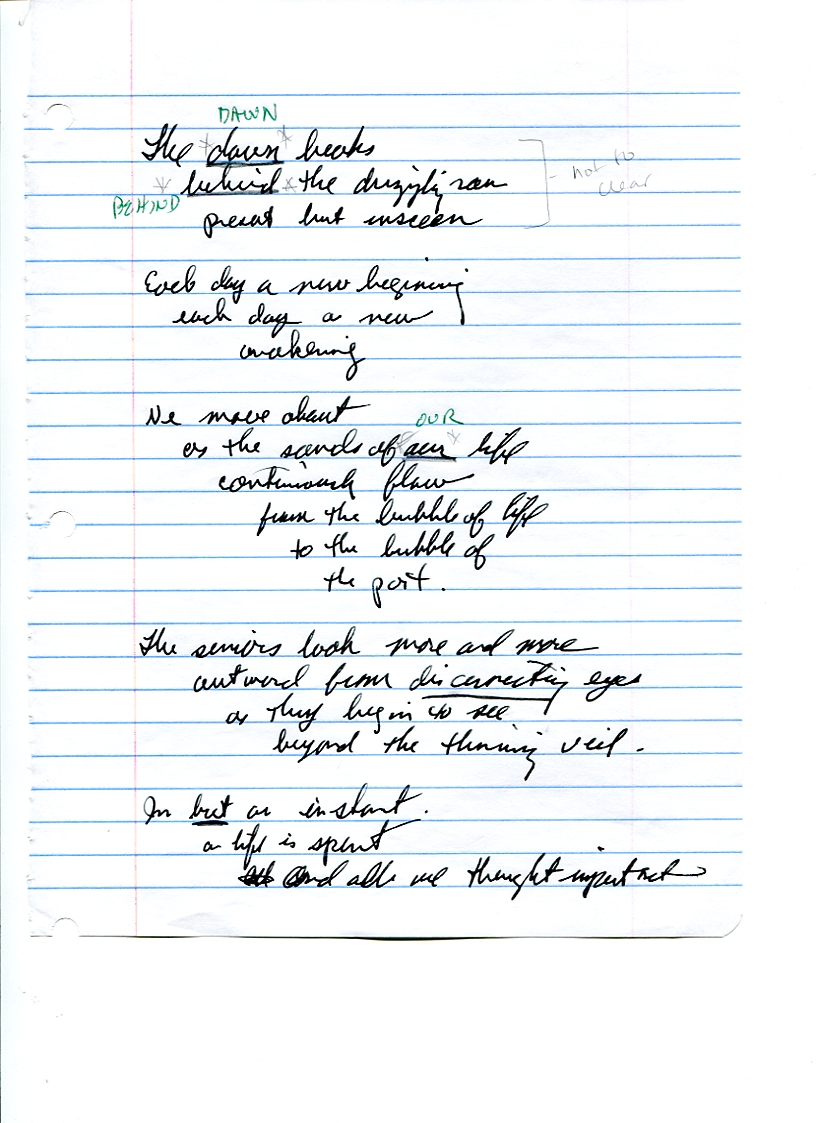 DAWN
The dawn breaks
behind the drizzly rain
BEHIND
present but unseen
not to
clear
Each day a new begining
each day a new
awakening
We move about
OUR
as the sands of our life
continiously flow
from the bubble of life
to the bubble of
the past.
The seniors look more and more
outward from disconnecting eyes
as they begin to see
beyond the thinning veil.
In but an instant.
a life is spent
and all we thought important